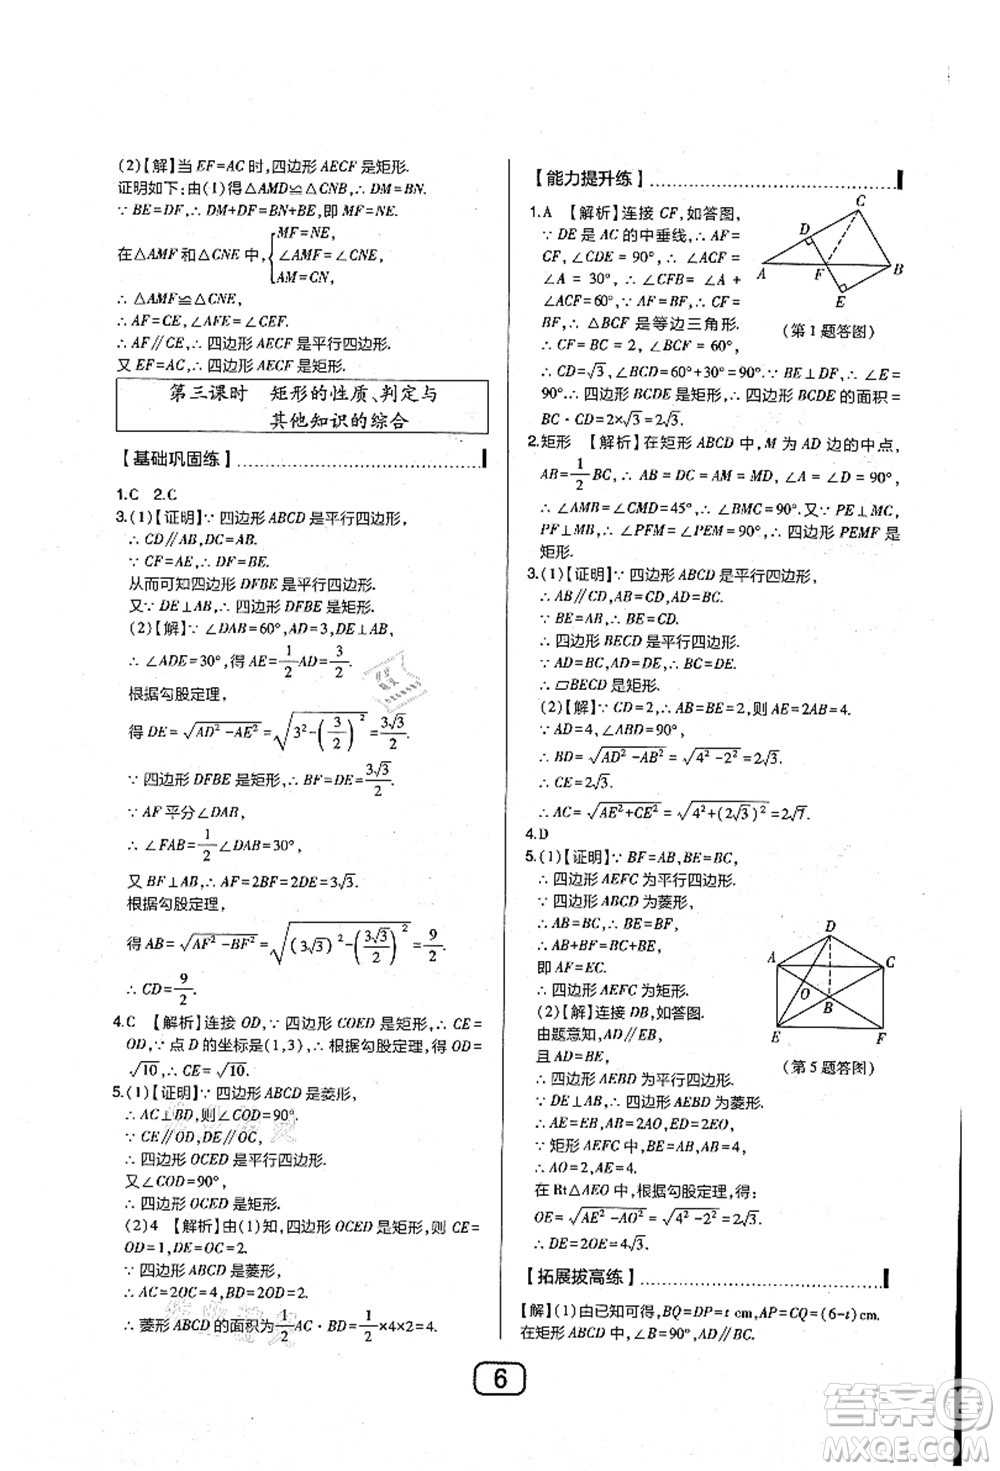 (2)【解】当 EF=AC 时,四边形 AECF 是矩形.
证明如下:由(1)得△AMD≌△CNB,∴DM=BN.
∵BE=DF,∴DM+DF=BN+BE,即 MF=NE.
在△AMF 和△CNE 中,{MF=NE, ∠AMF=∠CNE, AM=CN,
∴△AMF≌△CNE,
∴AF=CE,∠AFE=∠CEF.
∴AF∥CE,∴四边形 AECF 是平行四边形.
又 EF=AC,∴四边形 AECF 是矩形.
第三课时 矩形的性质、判定与
其他知识的综合
【基础巩固练】
1.C 2.C
3.(1)【证明】∵四边形 ABCD 是平行四边形,
∴CD∥AB,DC=AB.
∵CF=AE,∴DF=BE.
从而可知四边形 DFBE 是平行四边形.
又∵DE⊥AB,∴四边形 DFBE 是矩形.
(2)【解】∵∠DAB=60°,AD=3,DE⊥AB,
∴∠ADE=30°,得 AE=1/2AD=3/2.
根据勾股定理,
得 DE=√(AD²-AE²)=√(3²-(3/2)²)=3√3/2.
∵四边形 DFBE 是矩形,∴BF=DE=3√3/2.
∵AF 平分∠DAB,
∴∠FAB=1/2∠DAB=30°,
又 BF⊥AB,∴AF=2BF=3√3.
根据勾股定理,
得 AB=√(AF²-BF²)=√((3√3)²-(3√3/2)²)=9/2.
∴CD=9/2.
4.C 【解析】连接 OD,∵四边形 COED 是矩形,∴CE=
OD,∵点 D 的坐标是(1,3),∴根据勾股定理,得 OD=
√10,∴CE=√10.
5.(1)【证明】∵四边形 ABCD 是菱形,
∴AC⊥BD,则∠COD=90°.
∵CE∥OD,DE∥OC,
∴四边形 OCED 是平行四边形.
又∠COD=90°,
∴四边形 OCED 是矩形.
(2)4 【解析】由(1)知,四边形 OCED 是矩形,则 CE=
OD=1,DE=OC=2.
∵四边形 ABCD 是菱形,
∴AC=2OC=4,BD=2OD=2,
∴菱形 ABCD 的面积为1/2AC·BD=1/2×4×2=4.
【能力提升练】
1.A 【解析】连接 CF,如答图,
∵DE 是 AC 的中垂线,∴AF=
CF,∠CDE=90°,∴∠ACF=
∠A=30°,∴∠CFB=∠A+
∠ACF=60°,∵AF=BF,∴CF=
BF,∴△BCF 是等边三角形.
∴CF=BC=2,∠BCF=60°,
∴CD=√3,∠BCD=60°+30°=90°.∵BE⊥DF,∴∠E=
90°.∴四边形 BCDE 是矩形,∴四边形 BCDE 的面积=
BC·CD=2×√3=2√3.
A
B
C
D
E
F
(第1题答图)
2.矩形 【解析】在矩形 ABCD 中,M 为 AD 边的中点,
AB=1/2BC,∴AB=DC=AM=MD,∠A=∠D=90°,
∴∠AMB=∠CMD=45°,∴∠BMC=90°.又∵PE⊥MC,
PF⊥MB,∴∠PFM=∠PEM=90°,∴四边形 PEMF 是
矩形.
3.(1)【证明】∵四边形 ABCD 是平行四边形,
∴AB∥CD,AB=CD,AD=BC.
∵BE=AB,∴BE=CD.
∴四边形 BECD 是平行四边形.
∵AD=BC,AD=DE,∴BC=DE.
∴▱BECD 是矩形.
(2)【解】∵CD=2,∴AB=BE=2,则 AE=2AB=4.
∵AD=4,∠ABD=90°,
∴BD=√(AD²-AB²)=√(4²-2²)=2√3.
∴CE=2√3.
∴AC=√(AE²+CE²)=√(4²+(2√3)²)=2√7.
4.D
5.(1)【证明】∵BF=AB,BE=BC,
∴四边形 AEFC 为平行四边形.
∵四边形 ABCD 为菱形,
∴AB=BC,∴BE=BF,
∴AB+BF=BE+BC,
即 AF=EC.
∴四边形 AEFC 为矩形.
(2)【解】连接 DB,如答图,
由题意知,AD∥EB,
且 AD=BE,
∴四边形 AEBD 为平行四边形.
∵DE⊥AB,∴四边形 AEBD 为菱形.
∴AE=EB,AB=2AO,ED=2EO,
∵矩形 AEFC 中,EB=AB=4,
∴AO=2,AE=4.
在 Rt△AEO 中,根据勾股定理,得:
OE=√(AE²-AO²)=√(4²-2²)=2√3.
∴DE=2OE=4√3.
A
B
C
D
E
F
O
(第5题答图)
【拓展拔高练】
【解】(1)由已知可得,BQ=DP=t cm,AP=CQ=(6-t)cm.
在矩形 ABCD 中,∠B=90°,AD∥BC.
6
答案圈
MXQE.COM